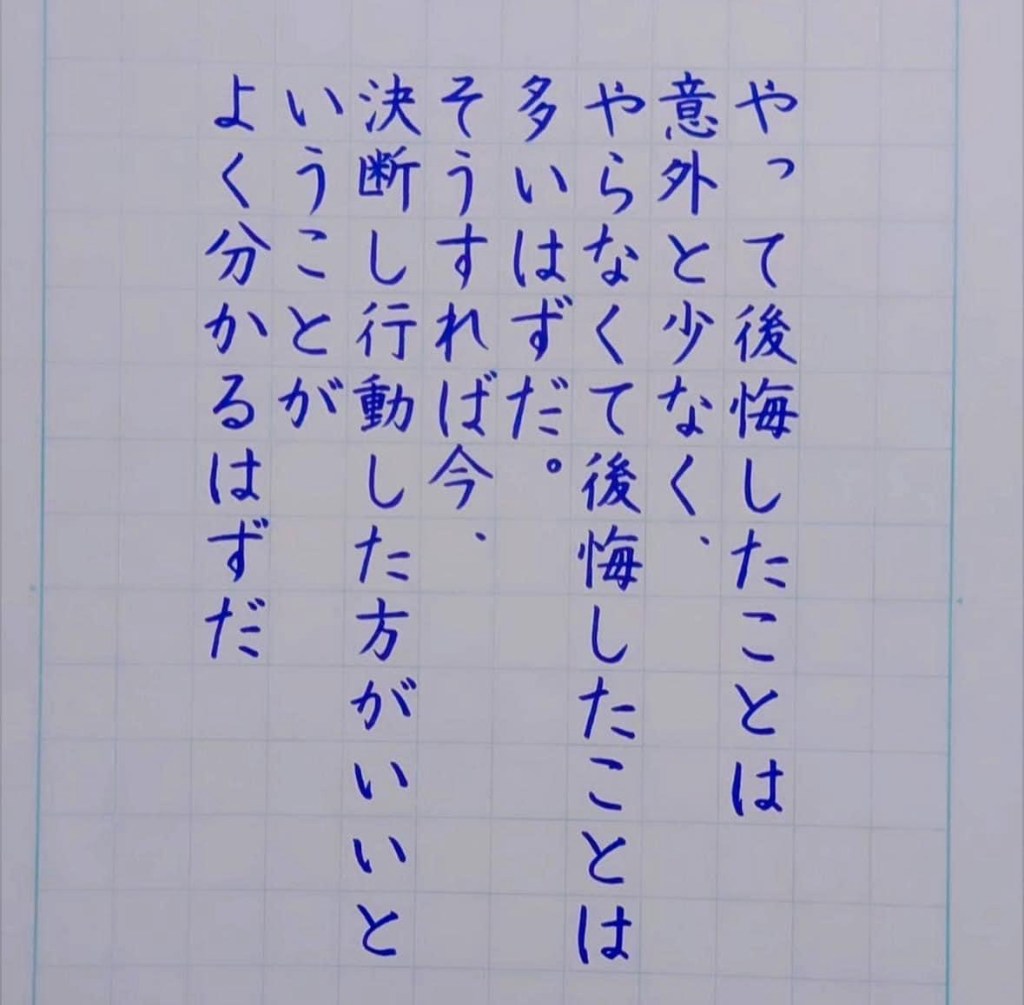 やって後悔したことは
意外と少なく、
やらなくて後悔したことは
多いはずだ。
そうすれば今、
決断し行動した方がいいと
いうことが
よく分かるはずだ